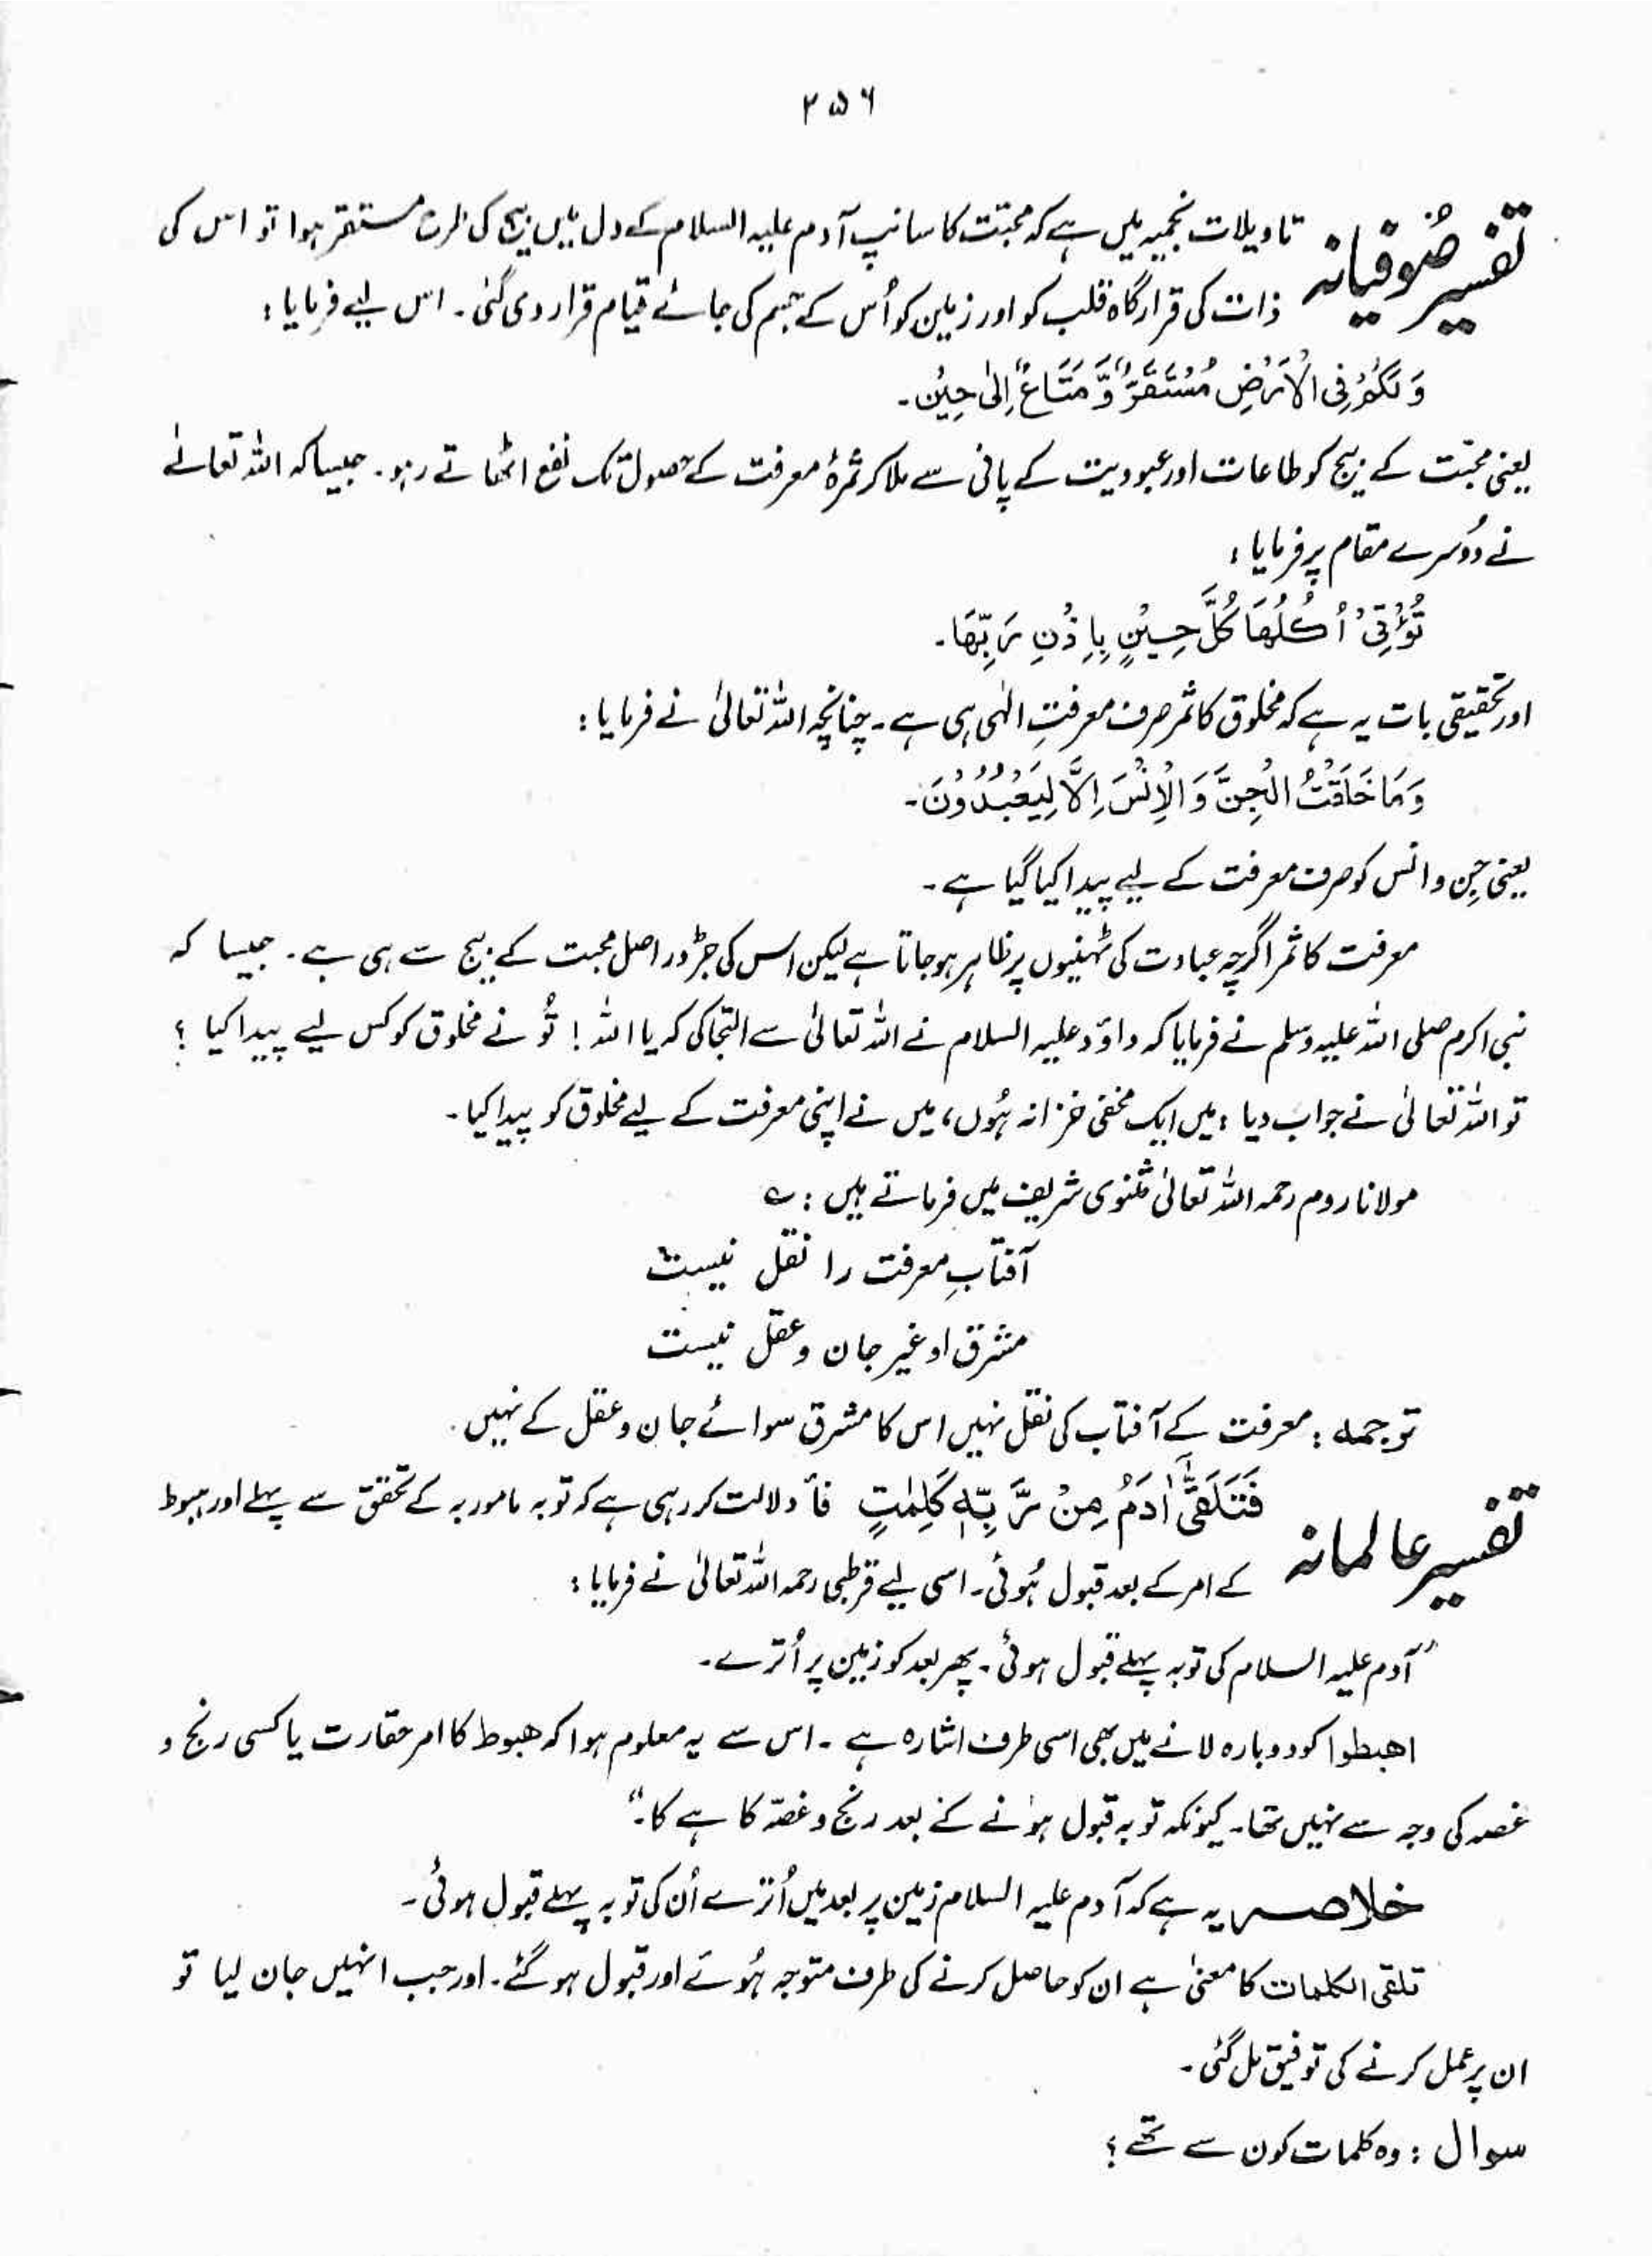 ۲۵۶
تفسیر صُوفیانہ تاویلات نجمیہ میں ہے کہ محبّت کا سانپ آدم علیہ السلام کے دل میں بیج کی طرح مستقر ہوا تو اس کی
ذات کی قرار گاہ قلب کو اور زمین کو اُس کے جسم کی جائے قیام قرار دی گئی۔ اس لیے فرمایا:
وَلَكُمْ فِی الْاَرْضِ مُسْتَقَرٌّ وَّمَتَاعٌ اِلٰی حِیْنٍ۔
یعنی محبّت کے بیج کو طاعات اور عبودیت کے پانی سے ملا کر ثمرۂ معرفت کے حصول تک نفع اٹھاتے رہو۔ جیسا کہ اللہ تعالےٰ
نے دُوسرے مقام پر فرمایا:
تُؤْتِیْ اُكُلَهَا كُلَّ حِیْنٍ بِاِذْنِ رَبِّهَا۔
اور تحقیقی بات یہ ہے کہ مخلوق کا ثمر صرف معرفتِ الٰہی ہی ہے۔ چنانچہ اللہ تعالیٰ نے فرمایا:
وَمَا خَلَقْتُ الْجِنَّ وَالْاِنْسَ اِلَّا لِیَعْبُدُوْنَ۔
یعنی جِن و انس کو صرف معرفت کے لیے پیدا کیا گیا ہے۔
معرفت کا ثمر اگرچہ عبادت کی ٹہنیوں پر ظاہر ہو جاتا ہے لیکن اس کی جڑ در اصل محبت کے بیج سے ہی ہے۔ جیسا کہ
نبی اکرم صلی اللہ علیہ وسلم نے فرمایا کہ داؤد علیہ السلام نے اللہ تعالیٰ سے التجا کی کہ یا اللہ! تُو نے مخلوق کو کس لیے پیدا کیا ؟
تو اللہ تعالیٰ نے جواب دیا: میں ایک مخفی خزانہ ہُوں، میں نے اپنی معرفت کے لیے مخلوق کو پیدا کیا۔
مولانا روم رحمہ اللہ تعالیٰ مثنوی شریف میں فرماتے ہیں: ؎
آفتابِ معرفت را نقل نیست
مشرق او غیر جان و عقل نیست
ترجمہ: معرفت کے آفتاب کی نقل نہیں اس کا مشرق سوائے جان و عقل کے نہیں۔
تفسیر عالمانہ فَتَلَقّٰٓی اٰدَمُ مِنْ رَّبِّهٖ كَلِمٰتٍ فأ دلالت کر رہی ہے کہ توبہ مامور بہ کے تحقق سے پہلے اور ہبوط
کے امر کے بعد قبول ہُوئی۔ اسی لیے قرطبی رحمہ اللہ تعالیٰ نے فرمایا:
"آدم علیہ السلام کی توبہ پہلے قبول ہوئی۔ پھر بعد کو زمین پر اُترے۔
اهبطوا کو دوبارہ لانے میں بھی اسی طرف اشارہ ہے۔ اس سے یہ معلوم ہوا کہ ھبوط کا امر حقارت یا کسی رنج و
غصہ کی وجہ سے نہیں تھا۔ کیونکہ توبہ قبول ہونے کے بعد رنج و غصّہ کا ہے کا۔"
خلاصہ یہ ہے کہ آدم علیہ السلام زمین پر بعد میں اُترے اُن کی توبہ پہلے قبول ہوئی۔
تلقی الکلمات کا معنیٰ ہے ان کو حاصل کرنے کی طرف متوجہ ہُوئے اور قبول ہو گئے۔ اور جب انھیں جان لیا تو
ان پر عمل کرنے کی توفیق مل گئی۔
سوال: وہ کلمات کون سے تھے؟